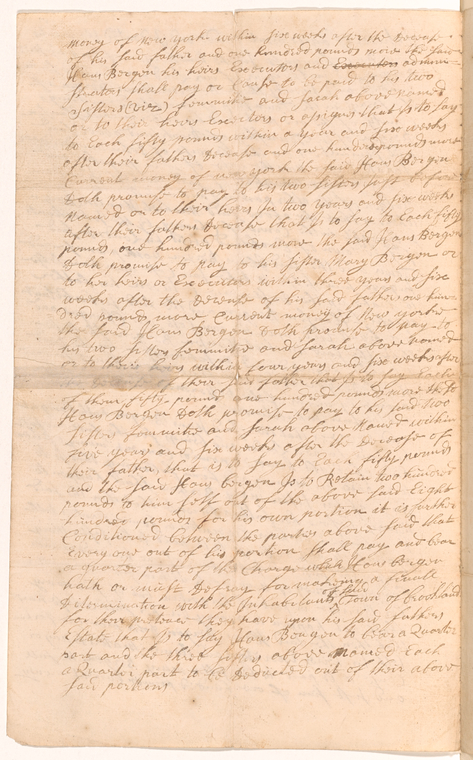 money of New York within six weeks after the Decease
of his said father and one hundred pounds more the said
Hans Bergen his heirs Executors and Executors admini
strators shall pay or cause to be paid to his two
Sisters (viz) femmitie and Sarah above named
or to their heirs Executors or assigns that is to say
to Each fifty pounds within a year and six weeks
after their fathers Decease and one hundred pounds more
Current money of new york the said Hans Bergen
Doth promise to pay to his two sisters just before
Named or to their heirs In two years and six weeks
after their fathers Decease that is to say to Each fifty
pounds, one hundred pounds more the said Hans Bergen
Doth promise to pay to his Sister Mary Bergen or
to her heirs or Executors within three years and six
weeks after the Decease of his said father one hun
dred pounds more Current money of New yorke
the said Hans Bergen Doth promise to pay to
his two sisters femmitie and Sarah above named
or to their heirs within four years and six weeks after
of their said father that is to say Each
of them fifty pounds one hundred pounds more the sd
Hans Bergen Doth promise to pay to his said two
Sisters femmitie and Sarah above Named within
five years and six weeks after the Decease of
their father, that is to say to Each fifty pounds
and the said Hans bergen Is to Retain two hundred
pounds to him self out of the above said Eight
hundred pounds for his own portion it is further
Conditioned between the parties above said that
Every one out of his portion shall pay and bear
a quarter part of the Charge which Hans bergen
hath or must Defray for making a finall
Determination with the Inhabitants of said Town of
for their they have upon his said fathers
Estate that is to say Hans Bergen to bear a Quarter
part and the three Sisters above Named Each
a Quarter part to be Deducted out of their above
said portions